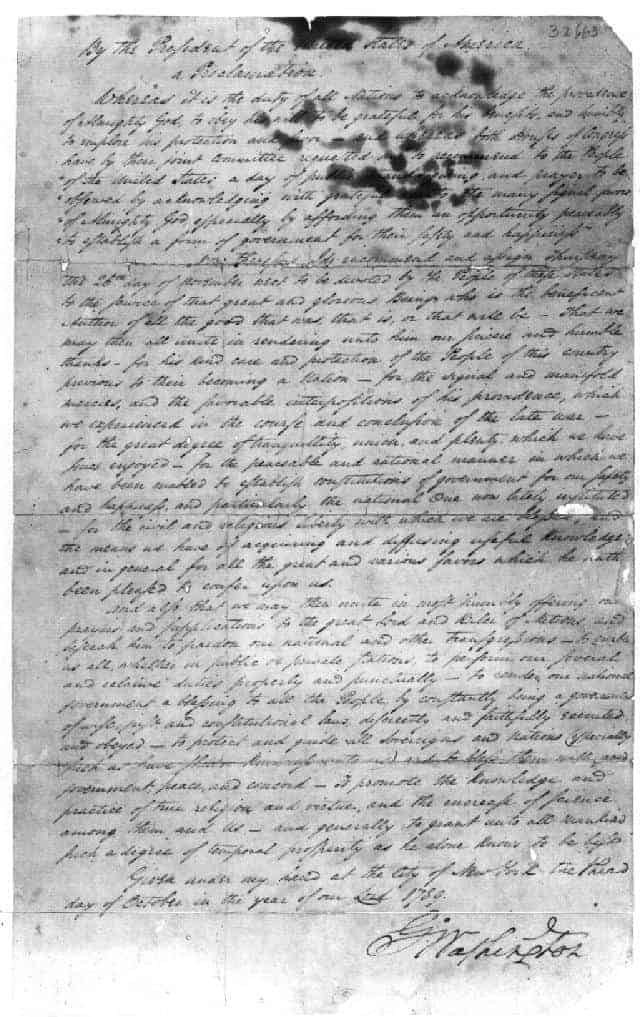 32663
By the President of the United States of America.
a Proclamation.
Whereas it is the duty of all Nations to acknowledge the providence
of Almighty God, to obey his will, to be grateful for his benefits, and humbly
to implore his protection and favor, and whereas both Houses of Congress
have by their joint Committee requested me "to recommend to the People
"of the United States a day of public thanksgiving and prayer to be
"observed by acknowledging with grateful hearts the many signal favors
"of Almighty God especially by affording them an opportunity peaceably
"to establish a form of government for their safety and happiness."
Now therefore I do recommend and assign Thursday
the 26th day of November next to be devoted by the People of these States
to the service of that great and glorious Being, who is the beneficent
Author of all the good that was, that is, or that will be – That we
may then all unite in rendering unto him our sincere and humble
thanks – for his kind care and protection of the People of this country
previous to their becoming a Nation – for the signal and manifold
mercies, and the favorable interpositions of his providence, which
we experienced in the course and conclusion of the late war –
for the great degree of tranquillity, union, and plenty, which we have
since enjoyed – for the peaceable and rational manner in which we
have been enabled to establish constitutions of government for our safety
and happiness, and particularly the national One now lately instituted
– for the civil and religious liberty with which we are blessed, and
the means we have of acquiring and diffusing useful knowledge;
and in general for all the great and various favors which he hath
been pleased to confer upon us.
And also that we may then unite in most humbly offering our
prayers and supplications to the great Lord and Ruler of Nations and
beseech him to pardon our national and other transgressions – to enable
us all, whether in public or private stations, to perform our several
and relative duties properly and punctually – to render our national
government a blessing to all the People, by constantly being a government
of wise, just and constitutional laws, discreetly and faithfully executed
and obeyed – to protect and guide all Sovereigns and Nations (especially
such as have shewn kindness unto us) and to bless them with good
government, peace, and concord – To promote the knowledge and
practice of true religion and virtue, and the encrease of science
among them and Us – and generally to grant unto all mankind
such a degree of temporal prosperity as he alone knows to be best.
Given under my hand at the City of New York the third
day of October in the year of our Lord 1789.
Go Washington